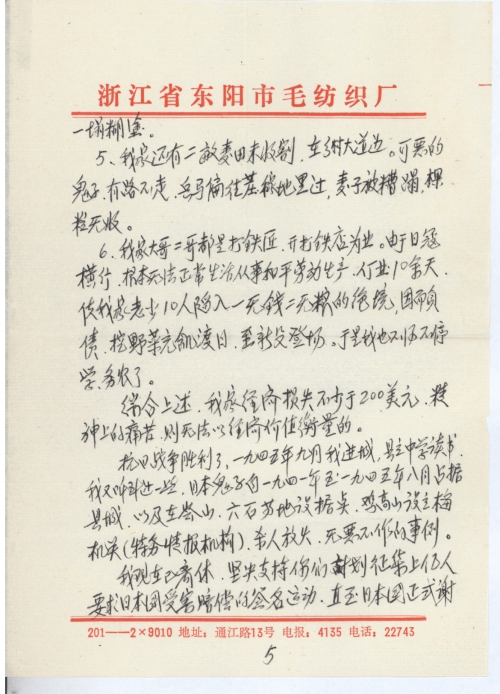 浙江省东阳市毛纺织厂
一塌糊塗。
5、我家还有二亩麦田未收割，在村大道边。可恶的
鬼子，有路不走，兵马偏往基稼地里过，麦子被糟蹋，棵
粒无收。
6、我家大哥二哥都是打铁匠，开打铁店为业。由于日寇
横行，根本无法正常生活从事和平劳动生产，停业10余天，
使我家老少10人陷入一无钱二无粮的绝境，因而负
债，挖野菜充飢渡日，至新谷登场。于是我也不得不停
学务农了。
综合上述，我家经济损失不少于200美元，精
神上的痛苦，则无法以经济价值衡量的。
抗日战争胜利了，一九四五年九月我进城，县立中学读书，
我又听到过一些，日本鬼子自一九四一年至一九四五年八月占据
县城，以及在岩山、六石等地设据点，鸡高山设立梅
机关（特务情报机构），杀人放火，无恶不作的事例。
我现在已离休，坚决支持你们计划征集上亿人
要求日本国受害赔偿的签名运动，直至日本国正式谢
201——2×9010 地址：通江路13号 电报：4135 电话：22743
5